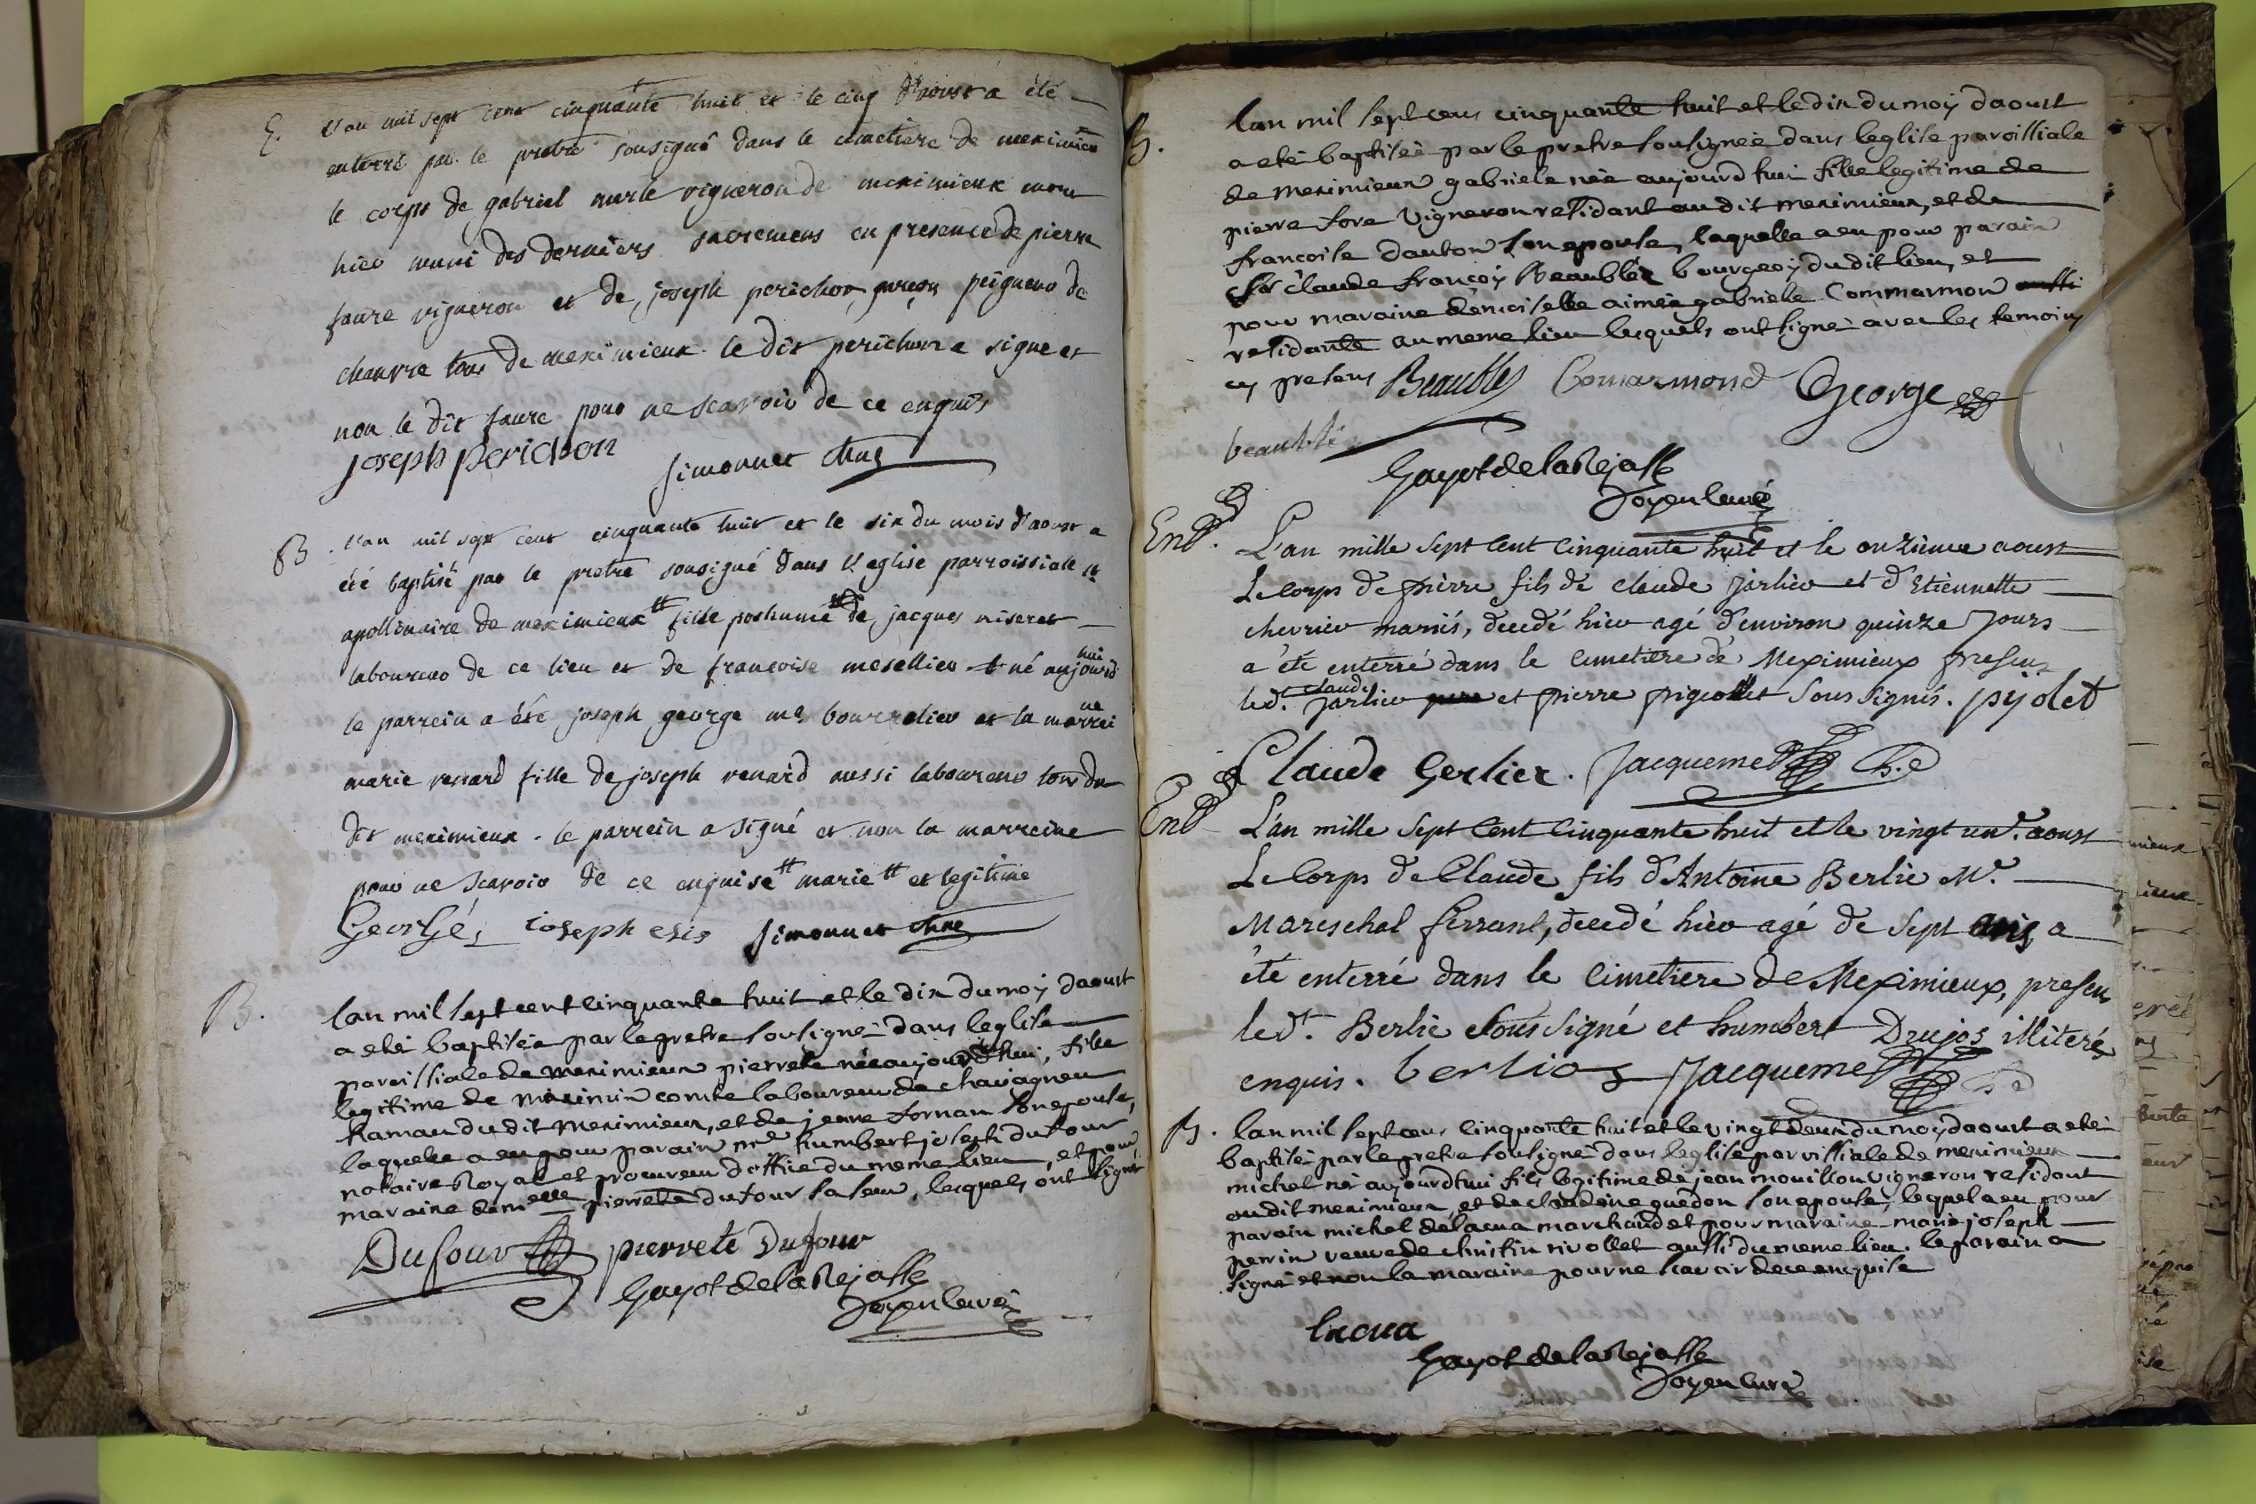 E. L'an mil sept cent cinquante huit et le cinq d'aoust a été
enterré par le pretre sousigné dans le cimetiere de meximieux
le corps de gabriel merle vigneron de meximieux mort
hier muni des derniers sacremens en presence de pierre
faure vigneron et de joseph perichon garçon peigneur de
chanvre tous de meximieux le dit perichon a signe et
non le dit faure pour ne scavoir de ce enquis
joseph perichon
simonnet chne
B. L'an mil sept cent cinquante huit et le six du mois d'aoust a
été baptisé par le pretre sousigné dans l'eglise parroissiale st
apollinaire de meximieux # fille postume # de jacques niseret
laboureur de ce lieu et de françoise mesellier né aujourd
hui
le parrein a été joseph george me bourrelier et la marrei
ne
marie renard fille de joseph renard aussi laboureur tous du
dit meximieux. le parrein a signé et non la marreine
pour ne scavoir de ce enquise # marie # et legitime
George joseph esis simonnet chne
B. lan mil sept cent cinquante huit et le dix du moy daoust
a eté baptisée par le pretre sousigné dans leglise
paroissiale de meximieux pierrete née aujourdhui, fille
legitime de maximin comte laboureur de chavagneu
hamau du dit meximieux, et de jeanne fornam son epouse,
laquelle a eu pour parain me humbert joseph dufour
notaire Royal et procureur doffice du meme lieu, et pour
maraine demelle pierrete dufour sa seur, lesquels ont signé
Dufour pierrete Dufour
Gayot de la Rejasse
Doyen curé
B. lan mil sept cens cinquante huit et le dix du moy daoust
a eté baptisée par le pretre sousignée dans leglise paroissiale
de meximieux gabriele née aujourdhui fille legitime de
pierre fore vigneron residant au dit meximieux, et de
francoise danton son epouse, laquelle a eu pour parain
sr claude françoy Beaublez bourgeoy dudit lieu, et
pour maraine demoiselle aimée gabriele Commarmon aussi
residante au meme lieu lesquels ont signé avec les temoins
cy presens Beaublez Comarmond George
beaublé
Gayot de la Rejasse
Doyen curé
Ent. L'an mille sept cent cinquante huit et le onzieme aoust
Le corps de pierre fils de claude jarlier et d'Etiennette
chevrier mariés, decedé hier agé d'environ quinze jours
a été enterré dans le cimetiere de Meximieux presens
claude
led.t jarlier pere et pierre pigeollet soussignés. pijolet
Claude Gerlier. Jacquemet
Ent L'an mille sept cent cinquante huit et le vingt un.e aoust
Le corps de Claude fils d'Antoine Berlie M.e
Mareschal ferrant, decedé hier agé de sept ans, a
été enterré dans le cimetiere de Meximieux, presens
led.t Berlie sous signé et humbert Drujos illiteré
enquis. berlio Jacquemet
B. lan mil sept cens cinquante huit et le vingt deux du moy daoust a eté
baptisé par le pretre sousigné dans leglise paroissiale de meximieux
michel né aujourdhui fils legitime de jean mouillon vigneron residant
au dit meximieux, et de claudine guedon son epouse, lequel a eu pour
parain michel delacua marchand et pour maraine marie joseph
perrin veuve de christin rivollet aussi du meme lieu. le parain a
signé et non la maraine pour ne scavoir de ce enquise
lacua
Gayot de la Rejasse
Doyen curé